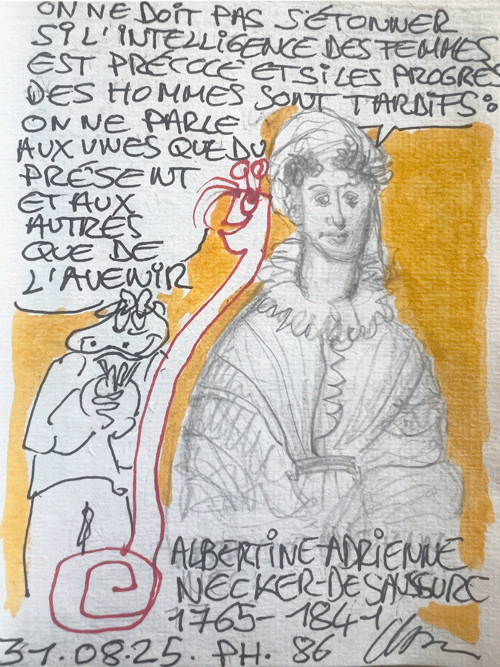 ON NE DOIT PAS S'ÉTONNER
SI L'INTELLIGENCE DES FEMMES
EST PRÉCOCE ET SI LES PROGRÈS
DES HOMMES SONT TARDIFS :
ON NE PARLE
AUX UNES QUE DU
PRÉSENT
ET AUX
AUTRES
QUE DE
L'AVENIR
ALBERTINE-ADRIENNE
NECKER-DE SAUSSURE
1765-1841
31.08.25. PH. 86